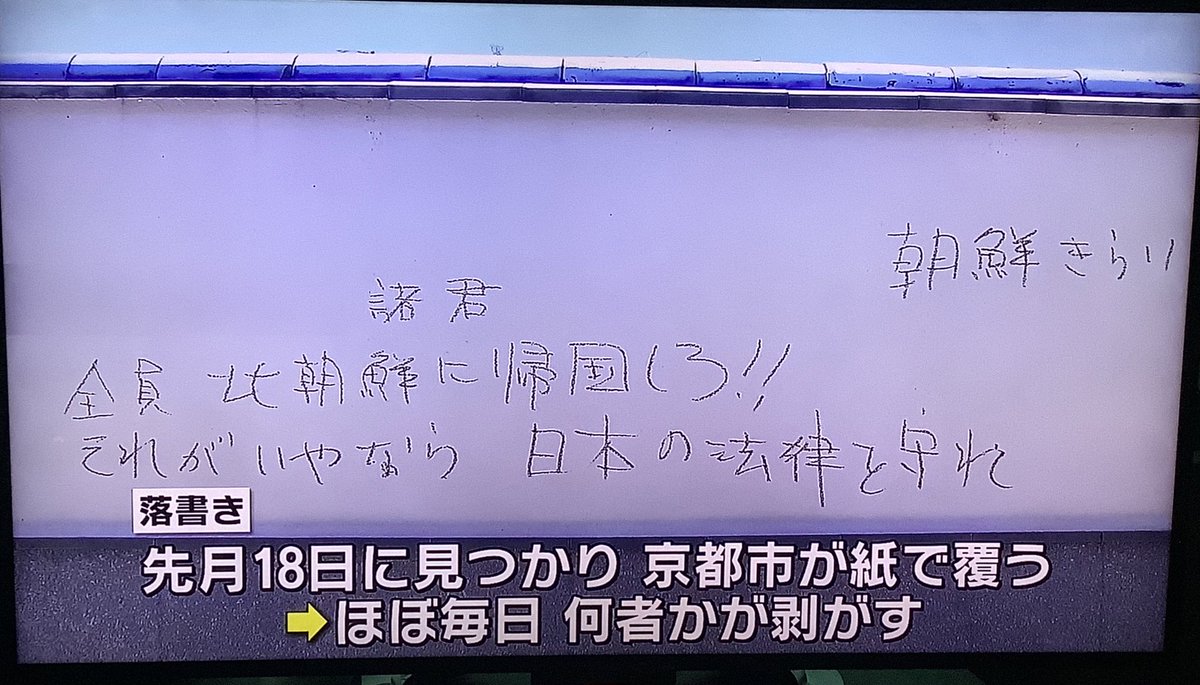 朝鮮きらい
諸君
全員 北朝鮮に帰国しろ!!
それがいやなら 日本の法律を守れ
落書き
先月18日に見つかり 京都市が紙で覆う
➡ほぼ毎日 何者かが剥がす